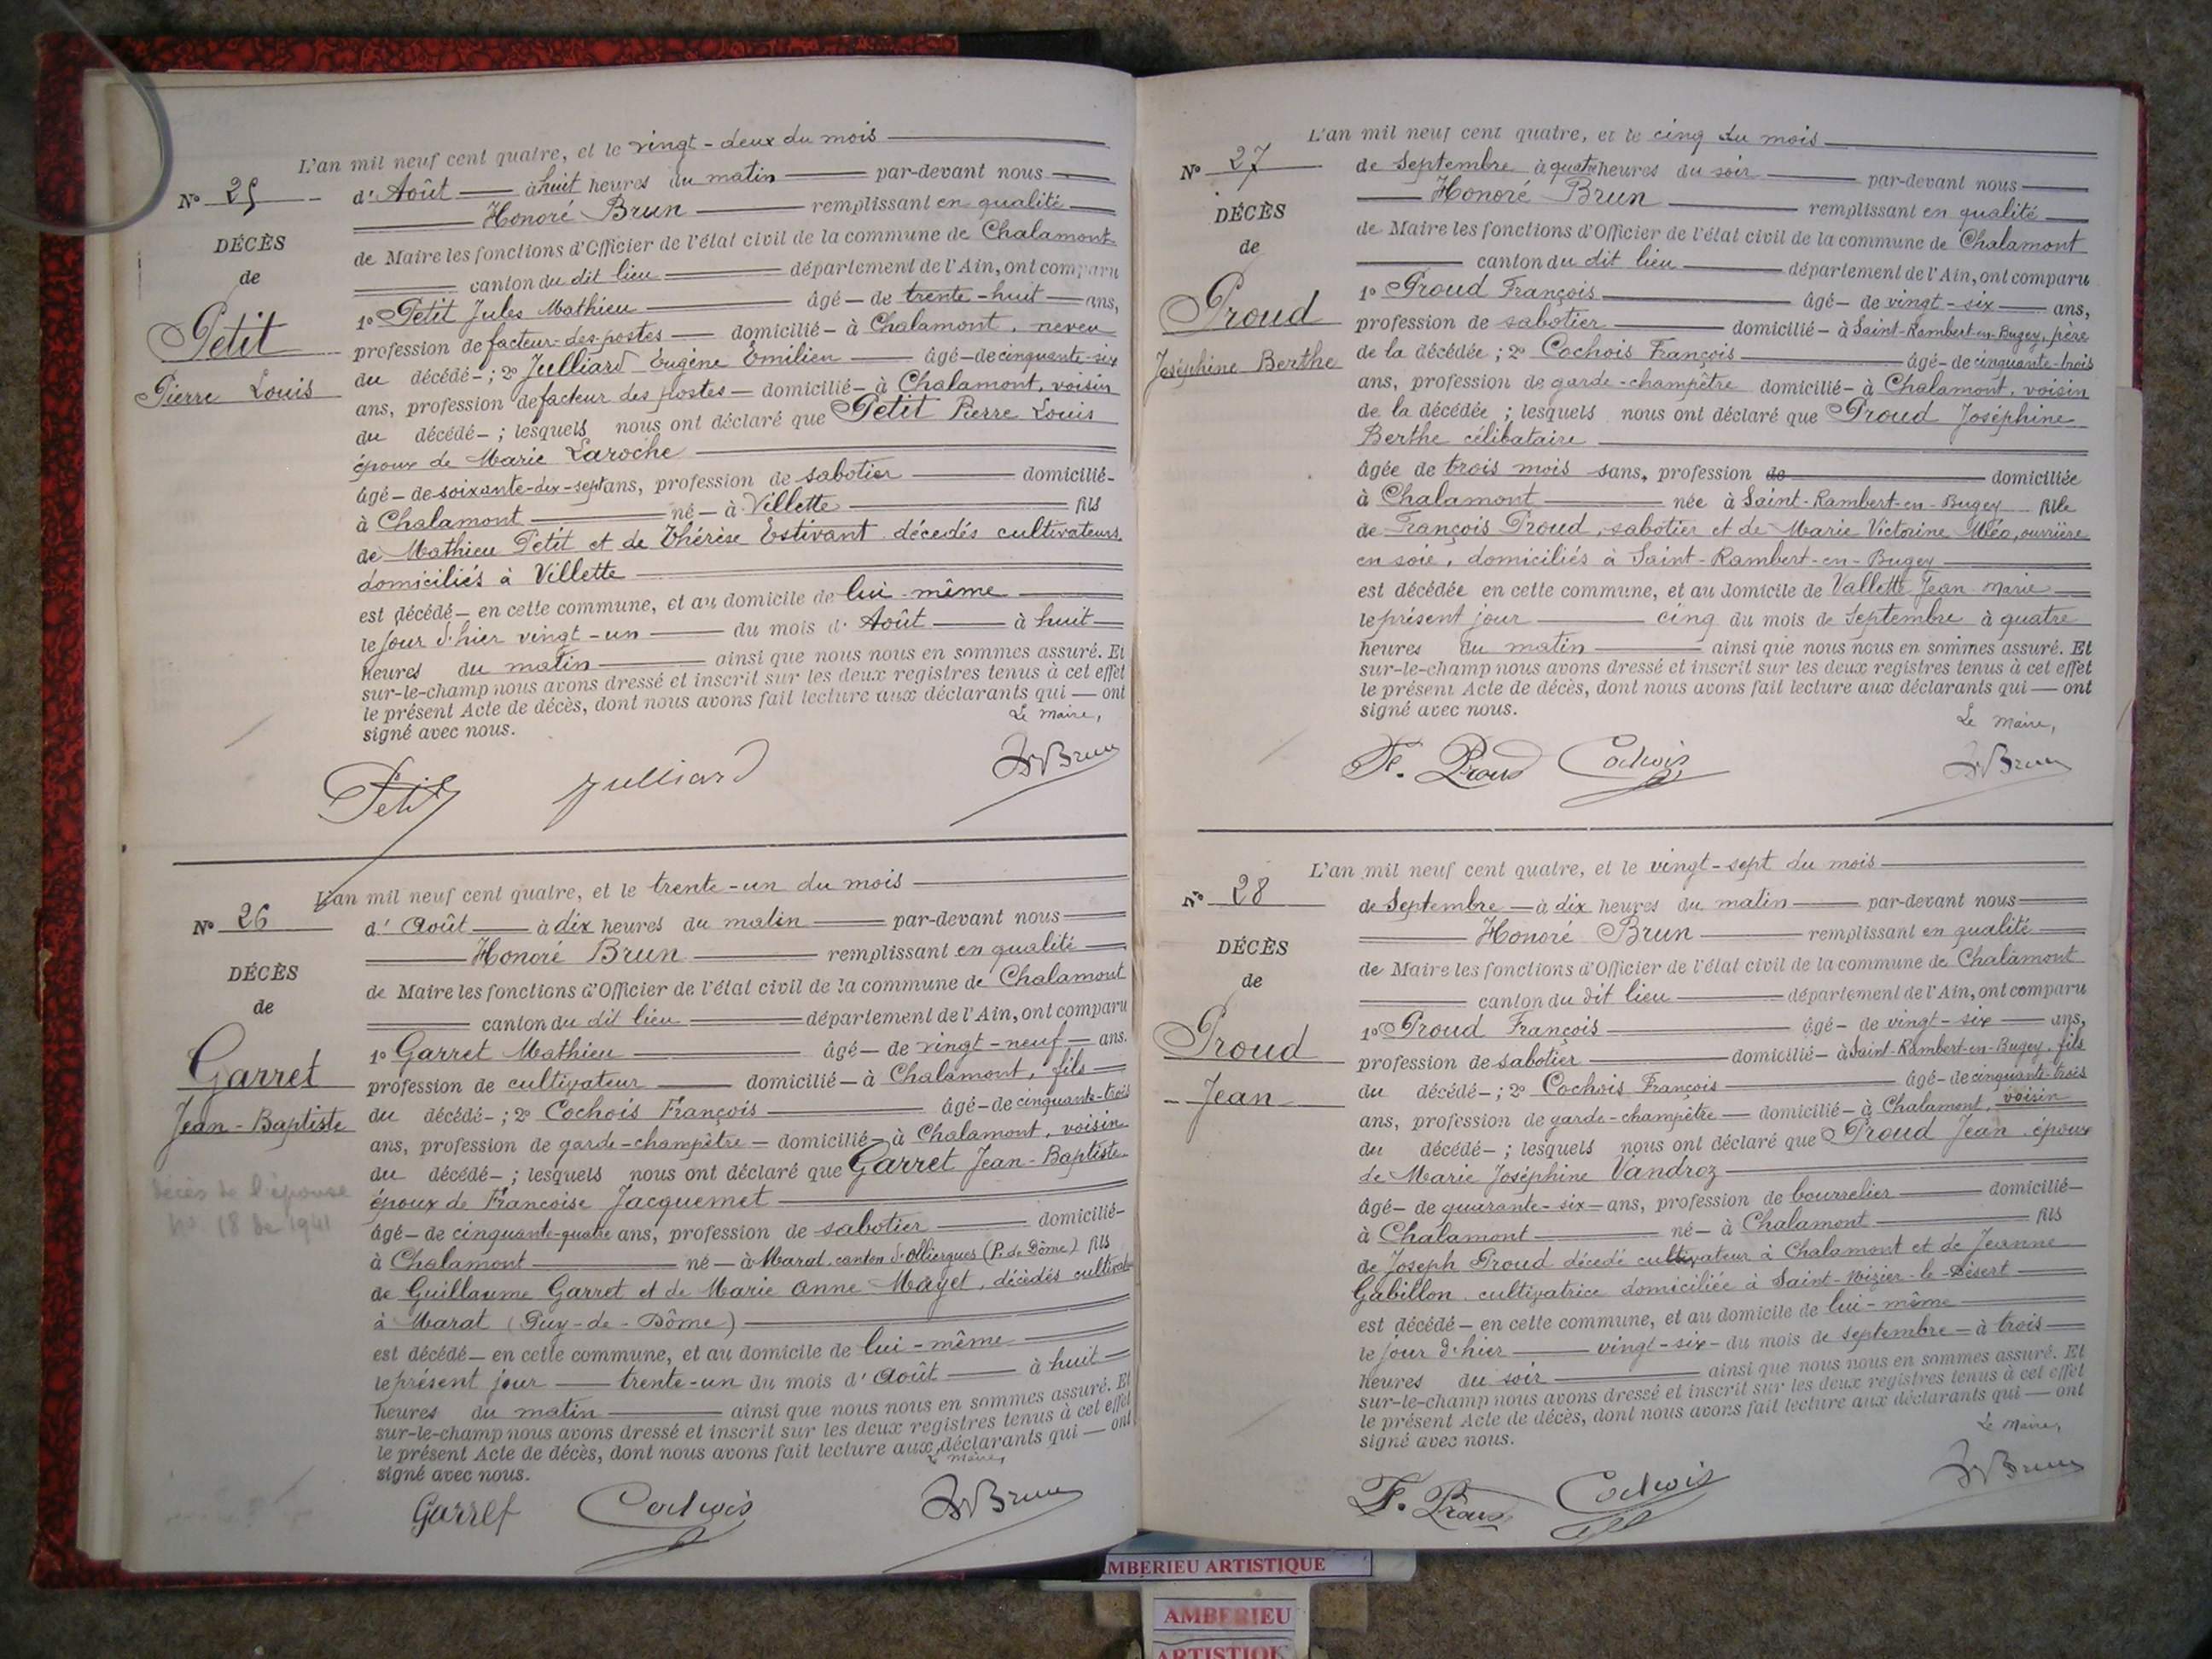 L'an mil neuf cent quatre, et le vingt-deux du mois
N° 25
d'Août à huit heures du matin par-devant nous
Honoré Brun remplissant en qualité
DÉCÈS
de Maire les fonctions d'Officier de l'état civil de la commune de Chalamont
de
canton du dit lieu département de l'Ain, ont comparu
Petit
1° Petit Jules Mathieu âgé de trente-huit ans,
profession de facteur des postes domicilié à Chalamont, neveu
Pierre Louis
du décédé ; 2° Julliard Eugène Émilien âgé de cinquante-six
ans, profession de facteur des postes domicilié à Chalamont, voisin
du décédé ; lesquels nous ont déclaré que Petit Pierre Louis
époux de Marie Laroche
âgé de soixante-dix-sept ans, profession de sabotier domicilié
à Chalamont né à Villette fils
de Mathieu Petit et de Thérèse Estivant décédés cultivateurs
domiciliés à Villette
est décédé en cette commune, et au domicile de lui-même
le jour d'hier vingt-un du mois d'Août à huit
heures du matin ainsi que nous nous en sommes assuré. Et
sur-le-champ nous avons dressé et inscrit sur les deux registres tenus à cet effet
le présent Acte de décès, dont nous avons fait lecture aux déclarants qui ont
signé avec nous.
Le maire,
Petit Julliard HBrun
L'an mil neuf cent quatre, et le trente-un du mois
N° 26
d'Août à dix heures du matin par-devant nous
Honoré Brun remplissant en qualité
DÉCÈS
de Maire les fonctions d'Officier de l'état civil de la commune de Chalamont
de
canton du dit lieu département de l'Ain, ont comparu
Garret
1° Garret Mathieu âgé de vingt-neuf ans.
profession de cultivateur domicilié à Chalamont, fils
Jean-Baptiste
du décédé ; 2° Cochois François âgé de cinquante-trois
ans, profession de garde-champêtre domicilié à Chalamont, voisin
du décédé ; lesquels nous ont déclaré que Garret Jean-Baptiste
Décès de l'épouse
N° 18 de 1941
époux de Francoise Jacquemet
âgé de cinquante-quatre ans, profession de sabotier domicilié
à Chalamont né à Marat, canton d'Olliergues (P. de Dôme) fils
de Guillaume Garret et de Marie Anne Mayet, décédés cultivat
à Marat (Puy-de-Dôme)
est décédé en cette commune, et au domicile de lui-même
le présent jour trente-un du mois d'Août à huit
heures du matin ainsi que nous nous en sommes assuré. Et
sur-le-champ nous avons dressé et inscrit sur les deux registres tenus à cet effet
le présent Acte de décès, dont nous avons fait lecture aux déclarants qui ont
signé avec nous.
Le maire,
Garret Cochois HBrun
L'an mil neuf cent quatre, et le cinq du mois
N° 27
de Septembre à quatre heures du soir par-devant nous
Honoré Brun remplissant en qualité
DÉCÈS
de Maire les fonctions d'Officier de l'état civil de la commune de Chalamont
de
canton du dit lieu département de l'Ain, ont comparu
Proud
1° Proud François âgé de vingt-six ans,
profession de sabotier domicilié à Saint-Rambert-en-Bugey, père
Joséphine Berthe
de la décédée ; 2° Cochois François âgé de cinquante-trois
ans, profession de garde-champêtre domicilié à Chalamont, voisin
de la décédée ; lesquels nous ont déclaré que Proud Joséphine
Berthe célibataire
âgée de trois mois sans, profession de domiciliée
à Chalamont née à Saint-Rambert-en-Bugey fille
de François Proud, sabotier et de Marie Victorine Méo, ouvrière
en soie, domiciliés à Saint-Rambert-en-Bugey
est décédée en cette commune, et au domicile de Vallette Jean Marie
le présent jour cinq du mois de Septembre à quatre
heures du matin ainsi que nous nous en sommes assuré. Et
sur-le-champ nous avons dressé et inscrit sur les deux registres tenus à cet effet
le présent Acte de décès, dont nous avons fait lecture aux déclarants qui ont
signé avec nous.
Le maire,
F. Proud Cochois HBrun
L'an mil neuf cent quatre, et le vingt-sept du mois
N° 28
de Septembre à dix heures du matin par-devant nous
Honoré Brun remplissant en qualité
DÉCÈS
de Maire les fonctions d'Officier de l'état civil de la commune de Chalamont
de
canton du dit lieu département de l'Ain, ont comparu
Proud
1° Proud François âgé de vingt-six ans,
profession de sabotier domicilié à Saint-Rambert-en-Bugey, fils
Jean
du décédé ; 2° Cochois François âgé de cinquante-trois
ans, profession de garde-champêtre domicilié à Chalamont, voisin
du décédé ; lesquels nous ont déclaré que Proud Jean époux
de Marie Joséphine Vandroz
âgé de quarante-six ans, profession de bourrelier domicilié
à Chalamont né à Chalamont fils
de Joseph Proud décédé cultivateur à Chalamont et de Jeanne
Gabillon cultivatrice domiciliée à Saint-Nizier-le-Désert
est décédé en cette commune, et au domicile de lui-même
le jour d'hier vingt-six du mois de septembre à trois
heures du soir ainsi que nous nous en sommes assuré. Et
sur-le-champ nous avons dressé et inscrit sur les deux registres tenus à cet effet
le présent Acte de décès, dont nous avons fait lecture aux déclarants qui ont
signé avec nous.
Le maire,
F. Proud Cochois HBrun
AMBERIEU ARTISTIQUE
AMBERIEU
ARTISTIQU